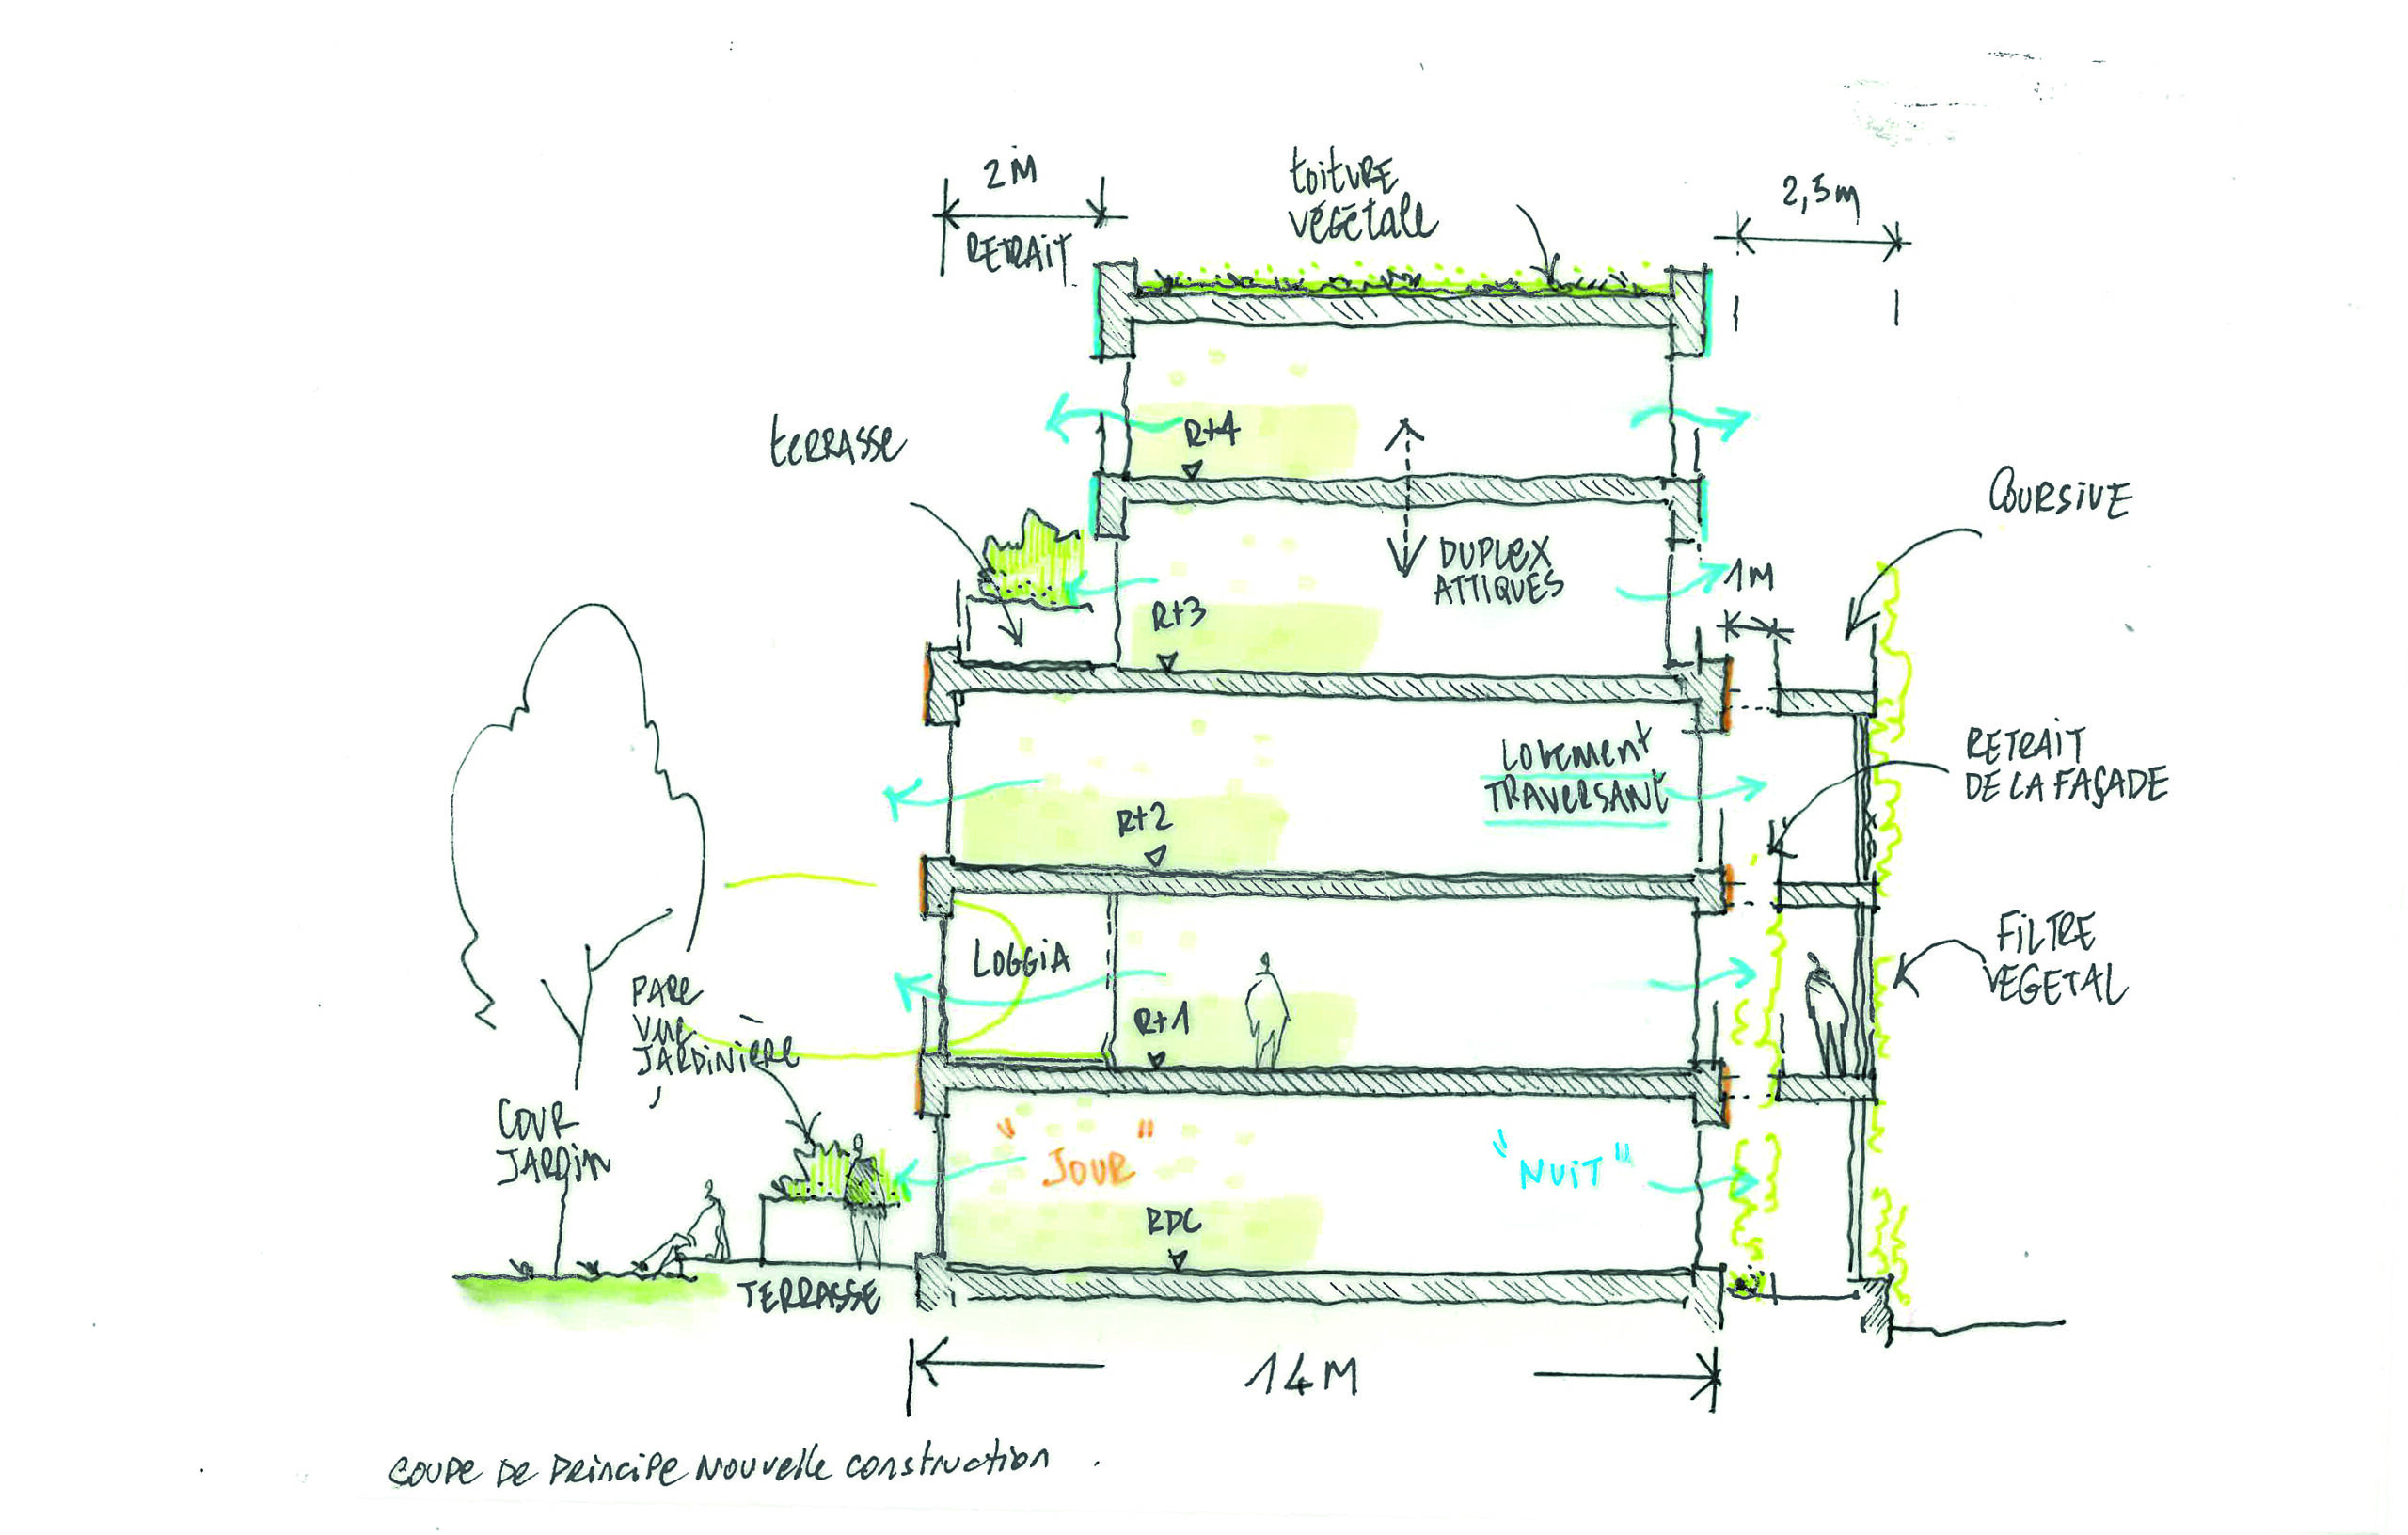 2M
RETRAIT
toiture
végétale
2,5m
terrasse
R+4
COURSIVE
DUPLEX
ATTIQUES
1M
R+3
LOGEMENT
TRAVERSANT
RETRAIT
DE LA FAÇADE
R+2
LOGGIA
FILTRE
VEGETAL
PARE
VUE
JARDINIÈRE
R+1
COUR
JARDIN
"JOUR"
"NUIT"
RDC
TERRASSE
14M
COUPE DE PRINCIPE NOUVELLE CONSTRUCTION.